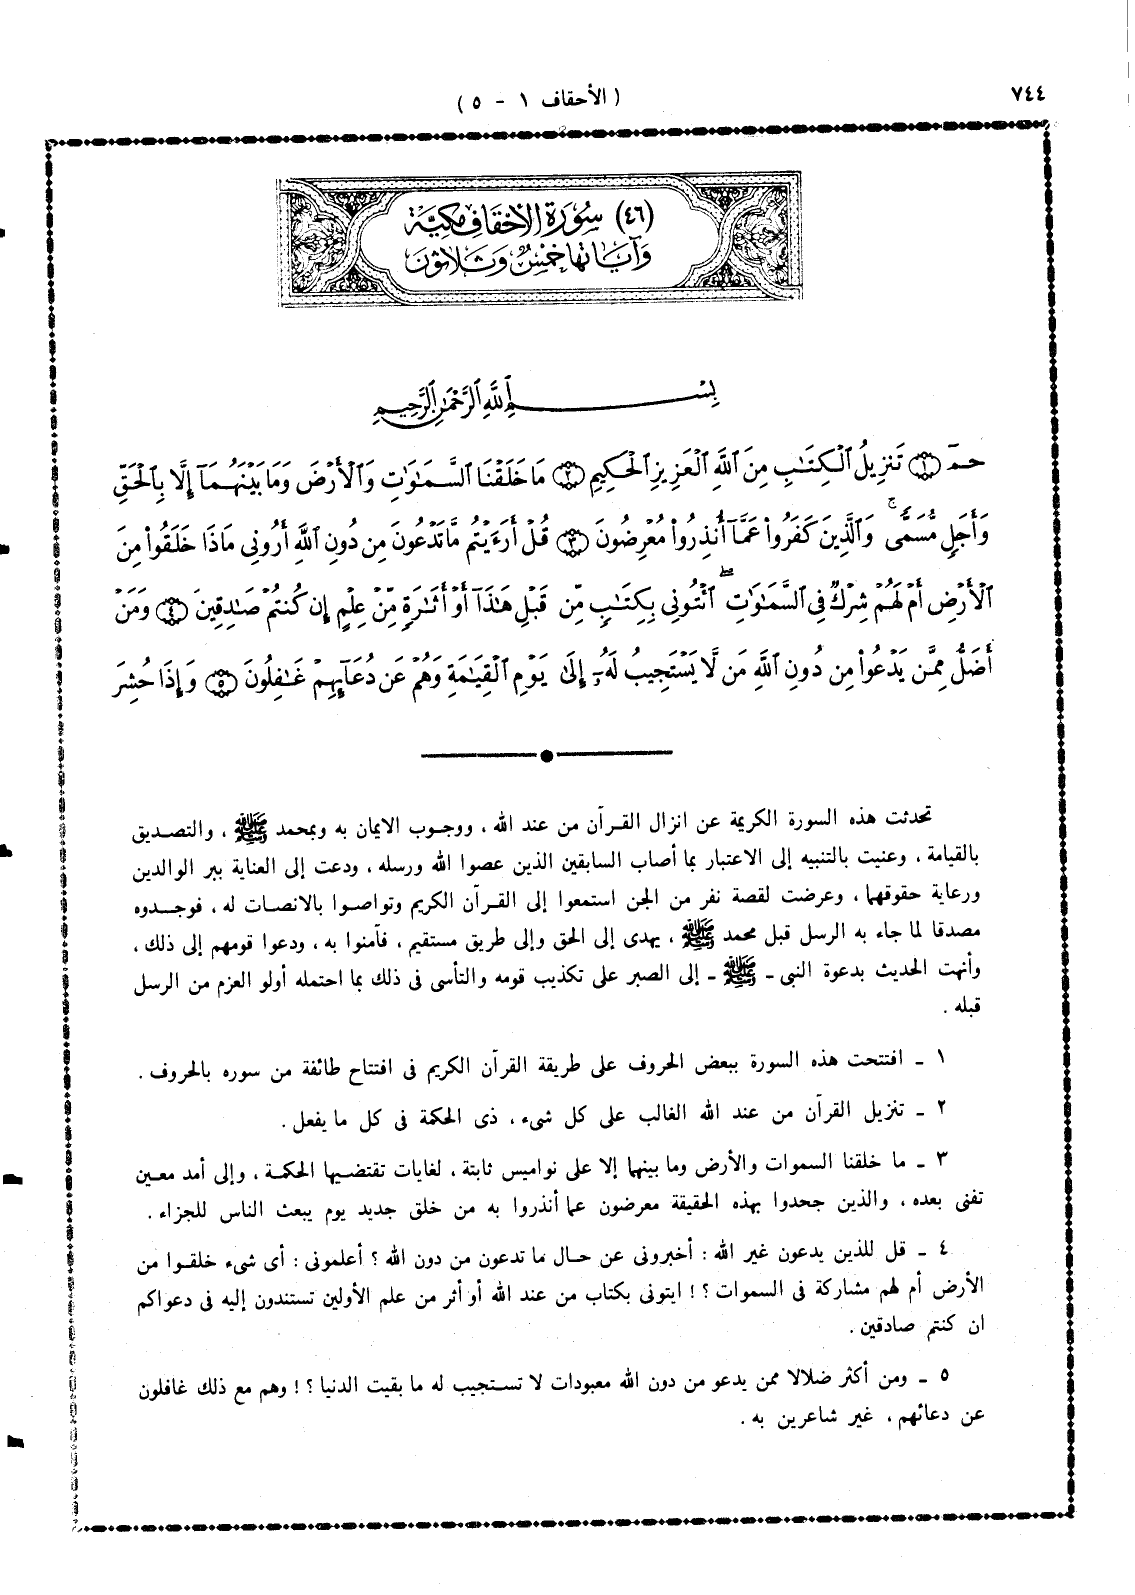 ٧٤٤
( الأحقاف ١ - ٥ )
(٤٦) سُورَة الأَحْقَافِ مَكيَّة
وَآيَاتها خَمْسٌ وَثَلاثُونَ
بِسْمِ ٱللَّهِ ٱلرَّحْمَٰنِ ٱلرَّحِيمِ
حمٓ ۝١ تَنزِيلُ ٱلْكِتَٰبِ مِنَ ٱللَّهِ ٱلْعَزِيزِ ٱلْحَكِيمِ ۝٢ مَا خَلَقْنَا ٱلسَّمَٰوَٰتِ وَٱلْأَرْضَ وَمَا بَيْنَهُمَآ إِلَّا بِٱلْحَقِّ
وَأَجَلٍ مُّسَمًّى ۚ وَٱلَّذِينَ كَفَرُوا۟ عَمَّآ أُنذِرُوا۟ مُعْرِضُونَ ۝٣ قُلْ أَرَءَيْتُم مَّا تَدْعُونَ مِن دُونِ ٱللَّهِ أَرُونِى مَاذَا خَلَقُوا۟ مِنَ
ٱلْأَرْضِ أَمْ لَهُمْ شِرْكٌ فِى ٱلسَّمَٰوَٰتِ ۖ ٱئْتُونِى بِكِتَٰبٍ مِّن قَبْلِ هَٰذَآ أَوْ أَثَٰرَةٍ مِّنْ عِلْمٍ إِن كُنتُمْ صَٰدِقِينَ ۝٤ وَمَنْ
أَضَلُّ مِمَّن يَدْعُوا۟ مِن دُونِ ٱللَّهِ مَن لَّا يَسْتَجِيبُ لَهُۥٓ إِلَىٰ يَوْمِ ٱلْقِيَٰمَةِ وَهُمْ عَن دُعَآئِهِمْ غَٰفِلُونَ ۝٥ وَإِذَا حُشِرَ
تحدثت هذه السورة الكريمة عن انزال القرآن من عند الله ، ووجوب الايمان به وبمحمد ﷺ ، والتصديق
بالقيامة ، وعنيت بالتنبيه إلى الاعتبار بما أصاب السابقين الذين عصوا الله ورسله ، ودعت إلى العناية ببر الوالدين
ورعاية حقوقهما ، وعرضت لقصة نفر من الجن استمعوا إلى القرآن الكريم وتواصوا بالانصات له ، فوجدوه
مصدقا لما جاء به الرسل قبل محمد ﷺ ، يهدى إلى الحق وإلى طريق مستقيم ، فآمنوا به ، ودعوا قومهم إلى ذلك ،
وأنهت الحديث بدعوة النبى ـ ﷺ ـ إلى الصبر على تكذيب قومه والتأسى فى ذلك بما احتمله أولو العزم من الرسل
قبله .
١ ـ افتتحت هذه السورة ببعض الحروف على طريقة القرآن الكريم فى افتتاح طائفة من سوره بالحروف .
٢ ـ تنزيل القرآن من عند الله الغالب على كل شىء ، ذى الحكمة فى كل ما يفعل .
٣ ـ ما خلقنا السموات والأرض وما بينهما إلا على نواميس ثابتة ، لغايات تقتضيها الحكمة ، وإلى أمد معين
تفنى بعده ، والذين جحدوا بهذه الحقيقة معرضون عما أنذروا به من خلق جديد يوم يبعث الناس للجزاء .
٤ ـ قل للذين يدعون غير الله : أخبرونى عن حال ما تدعون من دون الله ؟ أعلمونى : أى شىء خلقوا من
الأرض أم لهم مشاركة فى السموات ؟ ! ايتونى بكتاب من عند الله أو أثر من علم الأولين تستندون إليه فى دعواكم
ان كنتم صادقين .
٥ ـ ومن أكثر ضلالا ممن يدعو من دون الله معبودات لا تستجيب له ما بقيت الدنيا ؟ ! وهم مع ذلك غافلون
عن دعائهم ، غير شاعرين به .